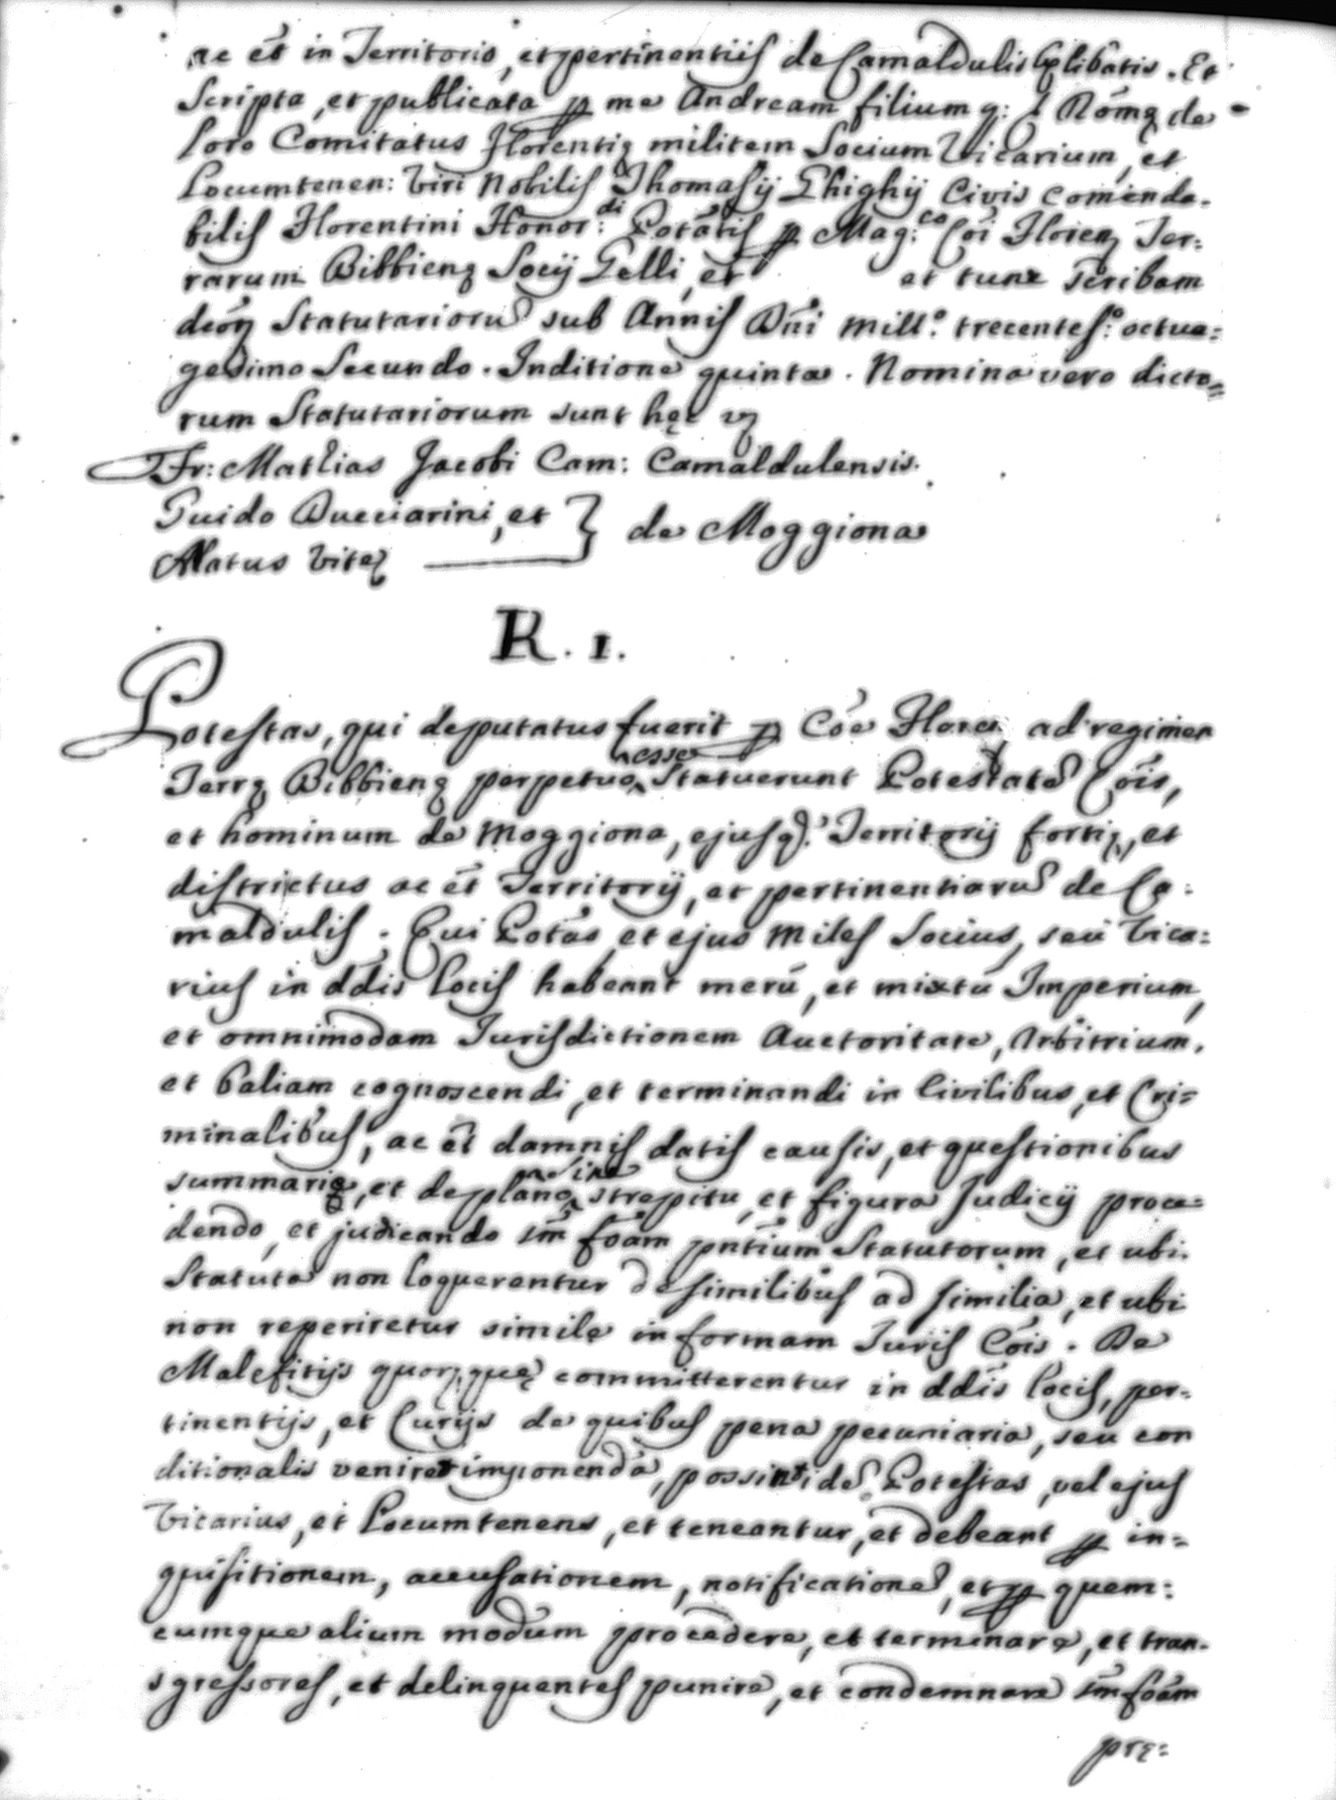 ac ēt in Territorio, et pertinentiis de Camaldulis explibatis. Et
Scripta, et publicata p me Andream filium q: Romę de
loro Comitatus Florentię militem Socium Vicarium, et
Locumtenen: Viri Nobilis Thomasij Ghighij Civis comenda-
bilis Florentini Honor:di Potātis p Mag:co Cōi Floren Ter:
rarum Bibbienę Socij Gelli, et et tunc scribam
dcōrz Statutarioru sub Annis Dn̄i mill:o trecentes:o octua=
gesimo Secundo. Inditione quinta. Nomina vero dicto=
rum Statutariorum sunt hęc vz
Fr: Mathias Jacobi Cam: Camaldulensis.
Guido Ducciarini, et } de Moggiona
Natus Vitę
R. 1.
Potestas, qui deputatus fuerit p Cōe Floren ad regimen
Terrę Bibbienę perpetuo esse Statuerunt Potestate Cōis,
et hominum de Moggiona, ejusq. Territorij fortię, et
districtus ac ēt Territorij, et pertinentiaru de Ca:
maldulis. Cui Potās, et ejus Miles Socius, seu Vica:
rius in ddis locis habeant merū, et mixtū Imperium,
et omnimodam Jurisdictionem Auctoritate, Arbitrium,
et baliam cognoscendi, et terminandi in Civilibus, et Cri=
minalibus, ac ēt damnis datis causis, et questionibus
summarię, et de plano sine strepitu, et figura Judicij proce=
dendo, et judicando sm̄ foām pn̄tium Statutorum, et ubi
Statuta non loquerentur de similibus ad similia, et ubi
non reperiretur simile in formam Juris Cōis. De
Malefitijs quorz.quę committerentur in ddis locis, per-
tinentijs, et Curijs de quibus pena pecuniaria, seu con
ditionalis veniret imponenda, possint ide Potestas, vel ejus
Vicarius, et Locumtenens, et teneantur, et debeant p in=
quisitionem, accusationem, notificatione, et p quem:
cumque alium modum procedere, et terminare, et tran-
sgressores, et delinquentes punire, et condemnare sm̄ foām
prę: